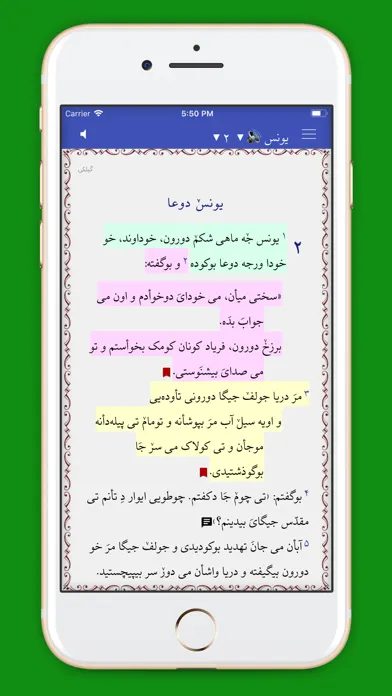 Carrier 5:50 PM
یونس ▼ ۲ ▼
گیلکی
یونسˇ دوعا
۲ ۱ یونس جه ماهی شکمˇ دورون، خوداوند، خو
خودا ورجه دوعا بوکوده ۲ و بوگفته:
«سختی میأن، می خودایَ دوخوأدم و اون می
جوابَ بدَه.
برزخˇ دورون، فریاد کونان کومک بخوأستم و تو
می صدایَ بیشنَوستی.
۳ مرَ دریا جولفˇ جیگا دورونی تأوده‌یی
و اویه سیلˇ آب مرَ بپوشأنه و تومامˇ تی پیله‌دأنه
موجأن و تی کولاک می سرˇ جَا
بوگذشتیدی.
۴ بوگفتم: ‹تی چومˇ جَا دکفتم. چوطویی ایوار دِ تأنم تی
مقدّس جیگایَ بیدینم؟›
۵ آبأن می جانَ تهدید بوکودیدی و جولفˇ جیگا مرَ خو
دورون بیگیفته و دریا واشأن می دورˇ سر بیپیچستید.